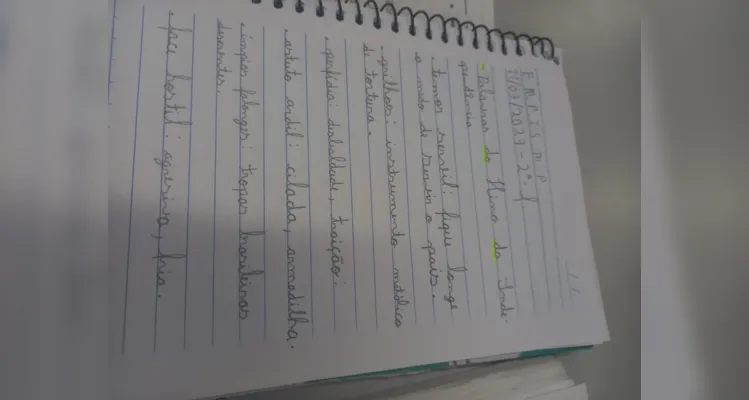 E M P I S M P
11/09/2029 - 2ª f.
- Palavras do Hino da Inde-
pendência
- temor servil: fique longe
o medo de servir o país.
- grilhões: instrumento metálico
de tortura.
- perfídia: deslealdade, traição:
- astuto ardil: cilada, armadilha.
- ímpias falanges: tropas brasileiras
descrentes.
- face hostil: agressiva, fria.